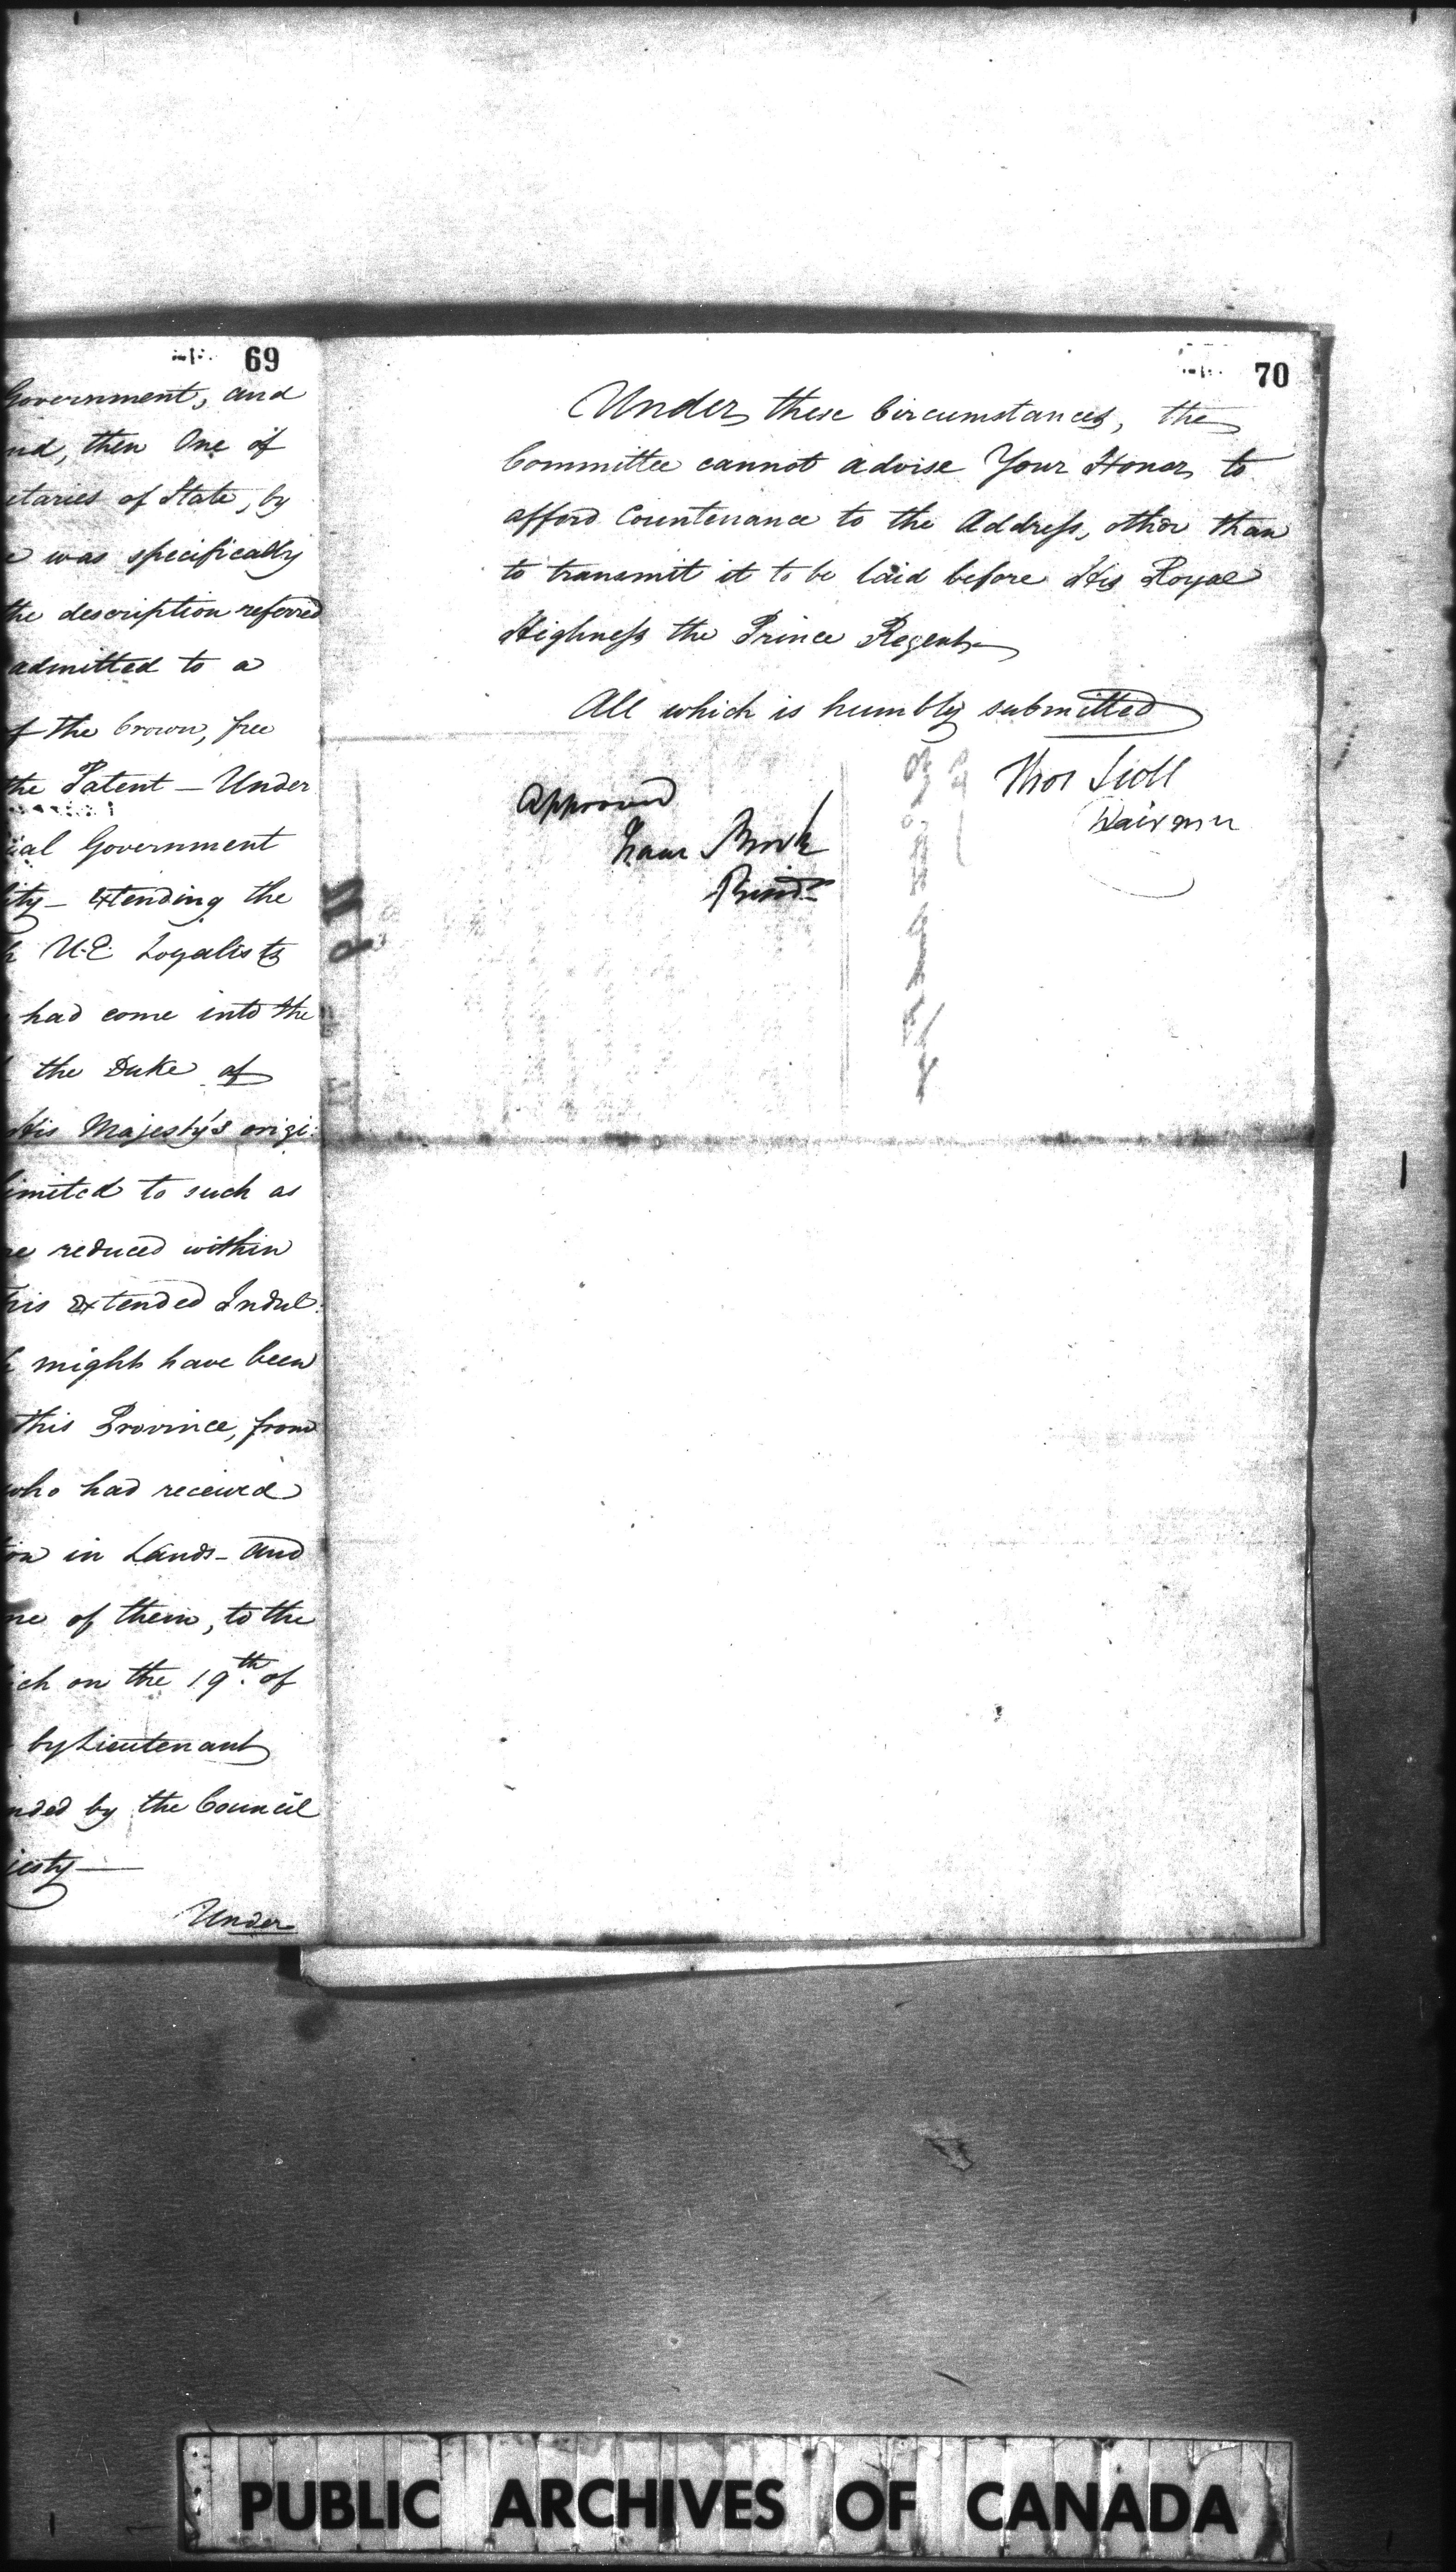 69
Government, and
nd, then One of
etaries of State, by
e was specifically
the description referred
admitted to a
f the Crown, free
the Patent — Under
ial Government
ity — extending the
U.E. Loyalists
had come into the
the Duke of
His Majesty's origi:
limited to such as
re reduced within
his extended Indul:
might have been
this Province, from
who had received
on in Lands — and
ne of them, to the
ich on the 19th. of
by Lieutenant
nded by the Council
jesty —
Under
70
Under these Circumstances, the
Committee cannot advise Your Honor to
afford Countenance to the Address, other than
to transmit it to be laid before His Royal
Highness the Prince Regent —
All which is humbly submitted
Thos Scott
Chairman
Approved
Isaac Brock
Presidt
PUBLIC ARCHIVES OF CANADA